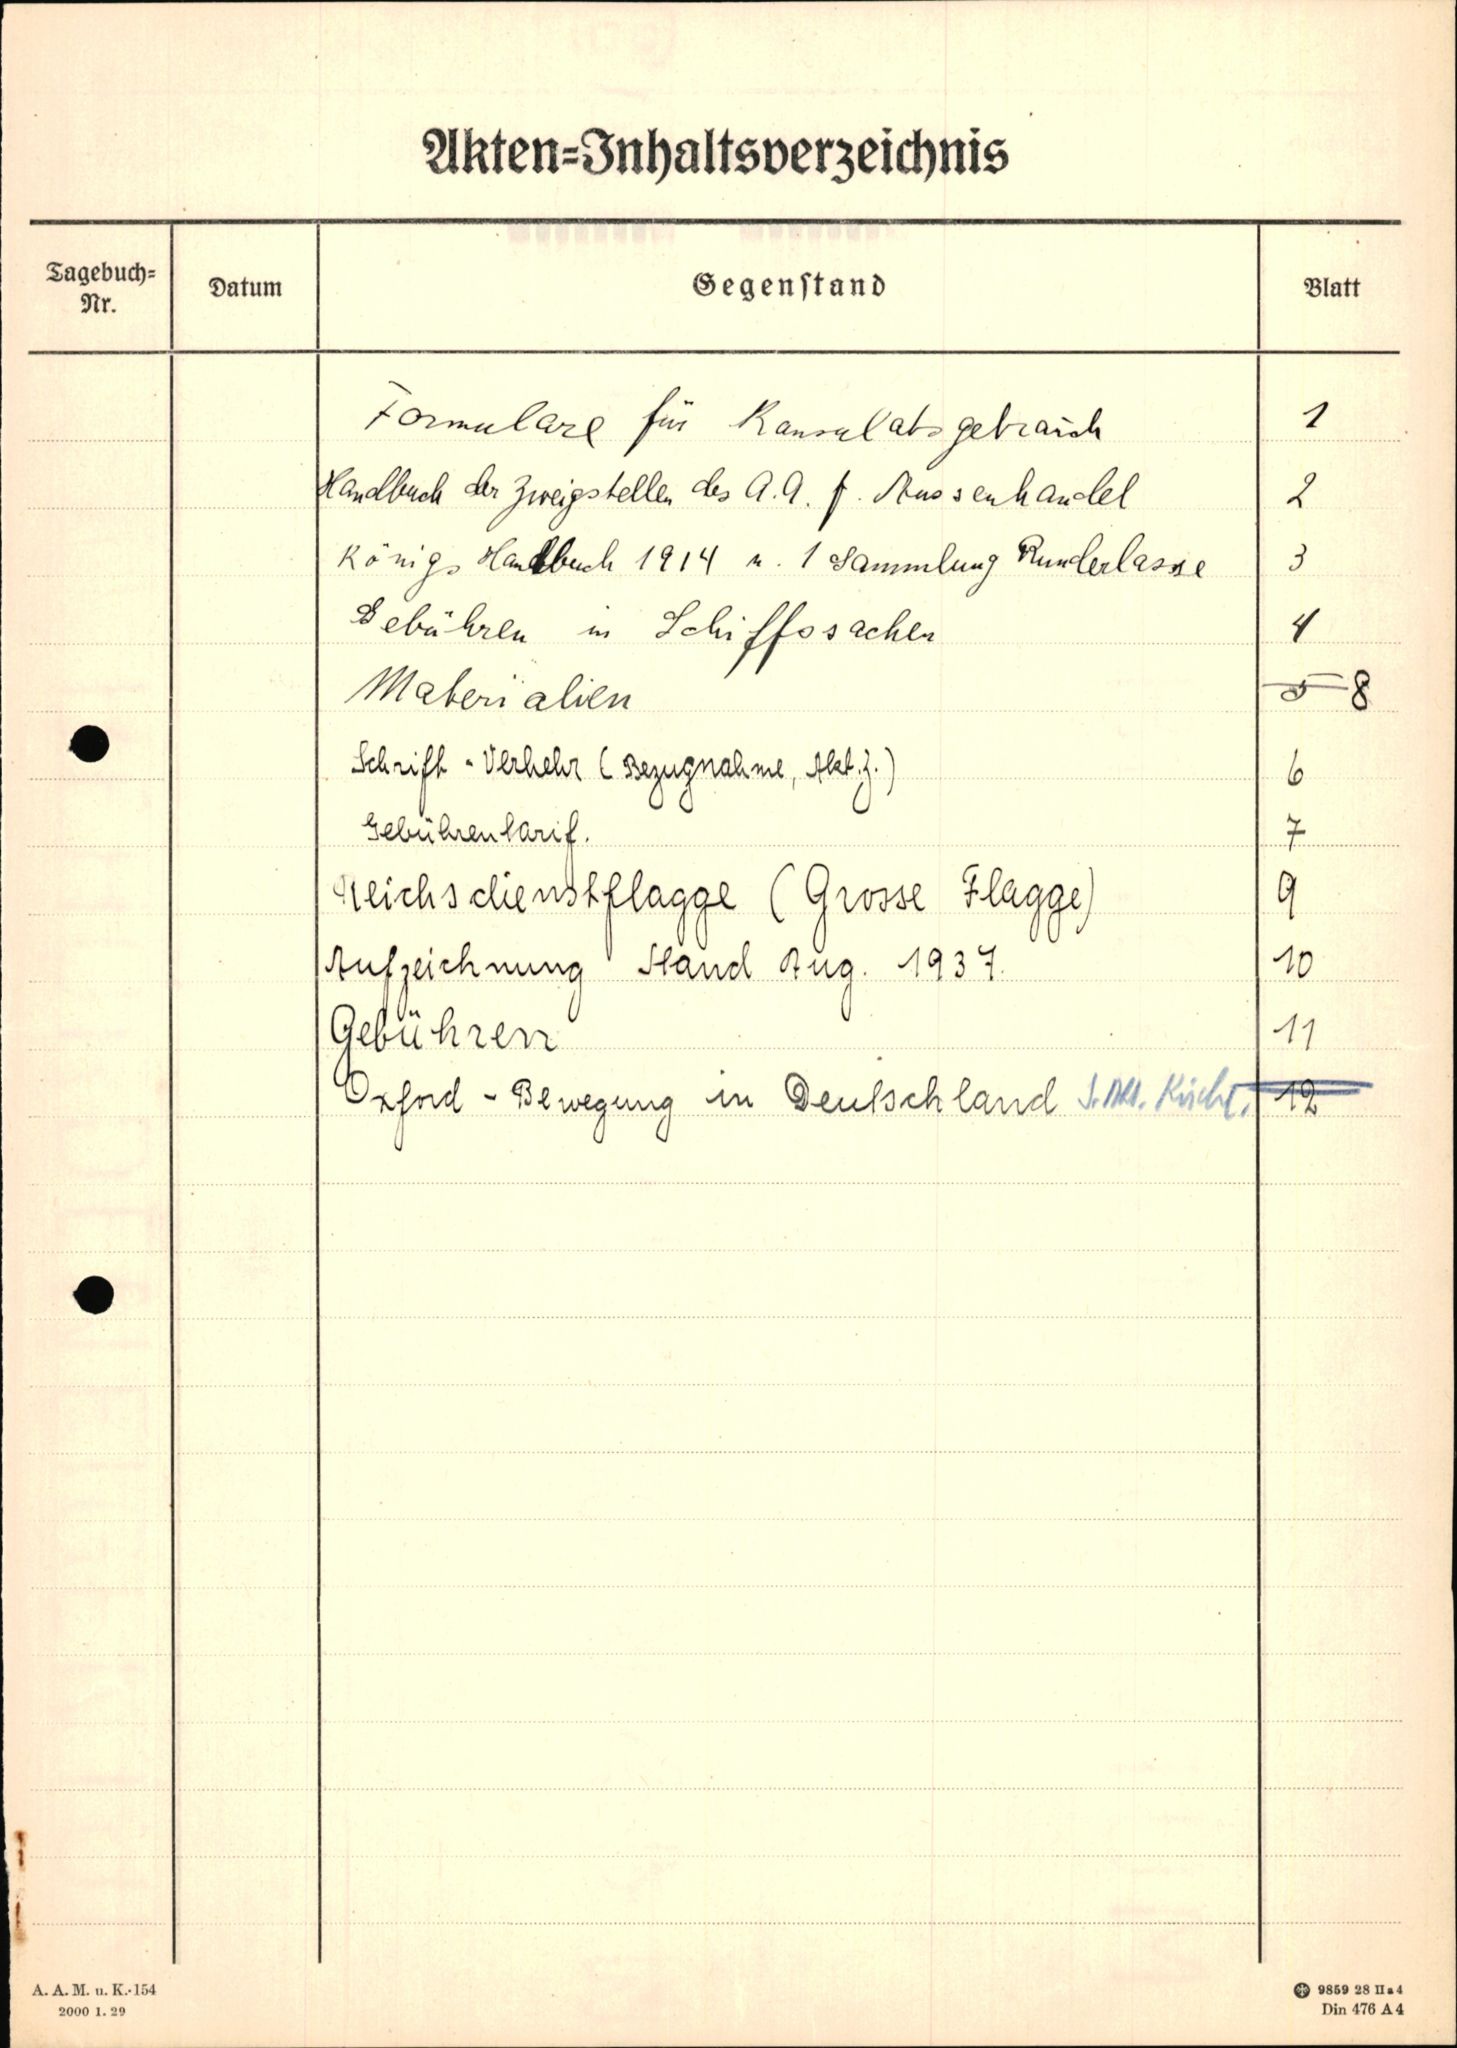 Akten-Inhaltsverzeichnis
Tagebuch-Nr. Datum Gegenstand Blatt
Formulare für Konsulatsgebrauch 1
Handbuch der Zweigstellen des A.A. f. Aussenhandel 2
Königs Handbuch 1914 u. 1 Sammlung Runderlasse 3
Gebühren in Schiffssachen 4
Materialien 5 8
Schrift-Verkehr (Bezugnahme, Akt.z.) 6
Gebührentarif. 7
Reichsdienstflagge (Grosse Flagge) 9
Aufzeichnung Stand Aug. 1937. 10
Gebühren 11
Oxford-Bewegung in Deutschland s. Akt. Kirche. 12
A. A. M. u. K.-154
2000 1. 29
9859 28 II a 4
Din 476 A 4